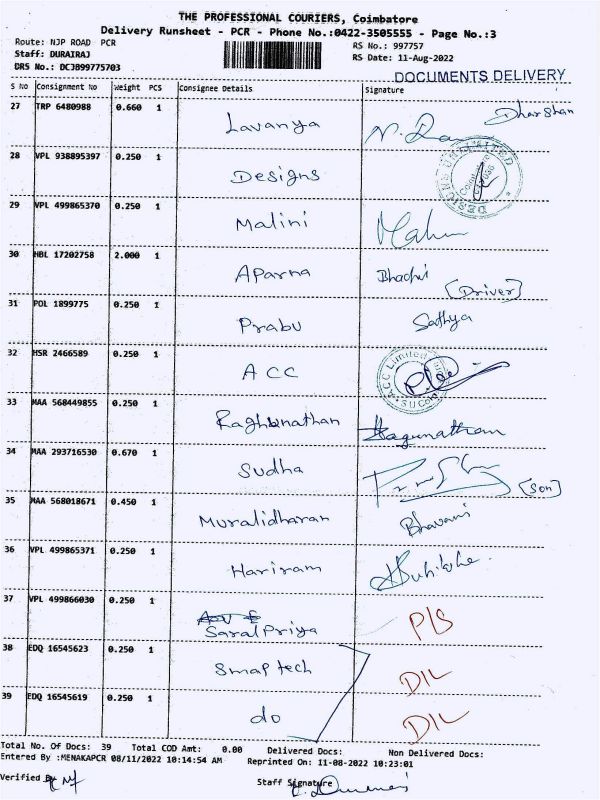 THE PROFESSIONAL COURIERS, Coimbatore
Delivery Runsheet - PCR - Phone No.:0422-3505555 - Page No.:3
Route: NJP ROAD PCR
RS No.: 997757
Staff: DURAIRAJ
RS Date: 11-Aug-2022
DRS No.: DCJB99775703
DOCUMENTS DELIVERY
S No Consignment No Weight PCS Consignee Details Signature
27 TRP 6480988 0.660 1 Lavanya Dharshan
28 VPL 938895397 0.250 1 Designs
DESIGNS UNLIMITED
29 VPL 499865370 0.250 1 Malini
30 HBL 17202758 2.000 1 Aparna
[Driver]
31 POL 1899775 0.250 1 Prabu Sathya
32 HSR 2466589 0.250 1 ACC
ACC Limited
33 MAA 568449855 0.250 1 Raghunathan Ragunathan
34 MAA 293716530 0.670 1 Sudha [Son]
35 MAA 568018671 0.450 1 Muralidharan Bhavani
36 VPL 499865371 0.250 1 Hariram
37 VPL 499866030 0.250 1 SaralPriya P/S
38 EDQ 16545623 0.250 1 Smap tech D/L
39 EDQ 16545619 0.250 1 do D/L
Total No. Of Docs: 39 Total COD Amt: 0.00 Delivered Docs: Non Delivered Docs:
Entered By :MENAKAPCR 08/11/2022 10:14:54 AM Reprinted On: 11-08-2022 10:23:01
Verified By
Staff Signature